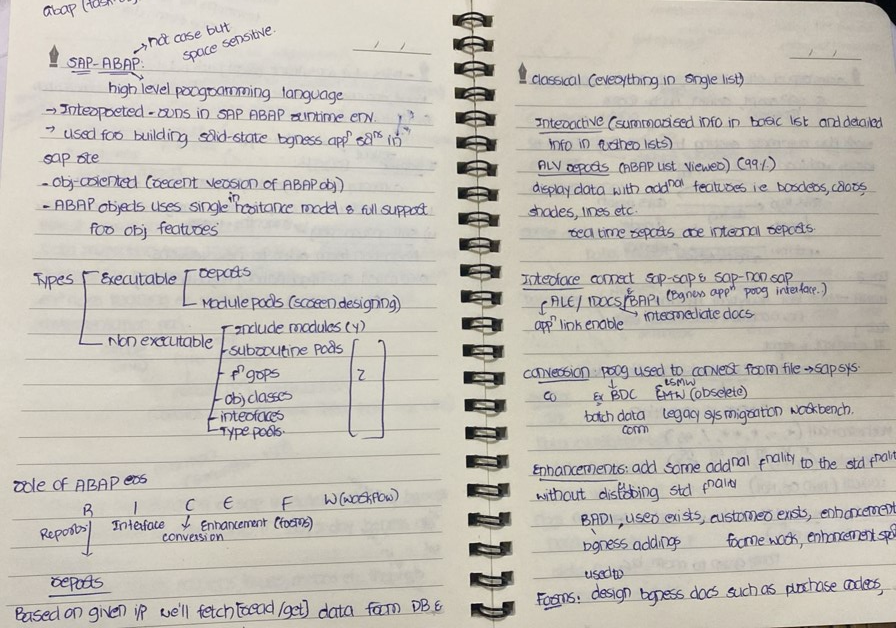 abap
→not case but
space sensitive.
SAP-ABAP:
high level programming language
→ Interpreted - runs in SAP ABAP runtime env.
→ used for building solid-state bsness appn solns in
sap ste
- obj-oriented (recent version of ABAP obj)
- ABAP objects uses single inheritance model & full support
for obj features
Types Executable reports
Module pools (screen designing)
Non executable include modules (y)
subroutine pools
fn grps
z
obj classes
interfaces
Type pools.
role of ABAP ers
R I C E F W (workflow)
Reports Interface ↓ Enhancement (forms)
conversion
reports
Based on given i/p we'll fetch [read/get] data from DB &
classical (everything in single list)
Interactive (summarised info in basic list and detailed
info in further lists)
ALV reports (ABAP list viewer) (99%)
display data with addnal features ie borders, colors,
shades, lines etc.
real time reports are internal reports.
Interface connect sap-sap & sap-non sap
ALE / IDOCs / BAPI (Bsness appn prog interface.)
appn link enable → intermediate docs
conversion prog used to convert from file → sap sys.
co Ex BDC LSMW (obselete)
batch data Legacy sys migration workbench.
comm
Enhancements: add some addnal fnality to the std fnali
without distrbing std fnality
BADI, user exists, customer exists, enhancement
bsness addings frame work, enhancement spo
used to
Forms: design bsness docs such as purchase orders,